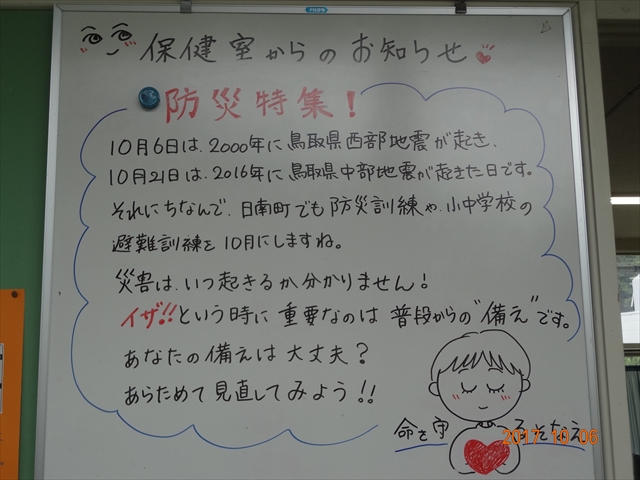 保健室からのお知らせ
防災特集！
10月6日は、2000年に鳥取県西部地震が起き、
10月21日は、2016年に鳥取県中部地震が起きた日です。
それにちなんで、日南町でも防災訓練や、小中学校の
避難訓練を10月にしますね。
災害は、いつ起きるか、分かりません！
イザ!!という時に重要なのは普段からの"備え"です。
あなたの備えは大丈夫？
あらためて見直してみよう!!
命を守るそなえ
2017 10 06